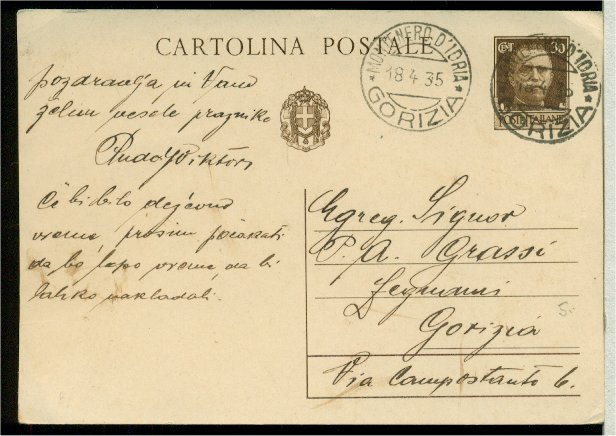 CARTOLINA POSTALE
MONTENERO D'IDRIA
18 4 35
GORIZIA
30
D'IDRIA
GORIZIA
POSTE ITALIANE
pozdravlja in Vam
želim vesele praznike
Rudolf Viktor
Če bi bilo dejevno
vreme, prosim počakati
da bo lepo vreme, da bi
lahko nakladali.
Egreg. Signor
P. A. Grassi
Legnami
Gorizia
Via Camposanto 6.